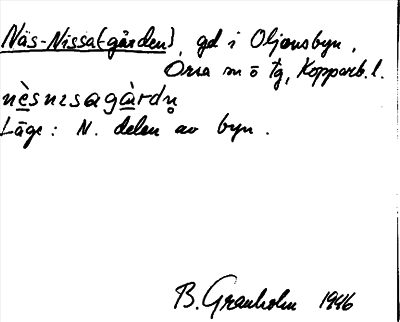 Näs-Nissa(-gården), gd i Oljonsbyn,
Orsa sn ö fg, Kopparb. l.
nèsnɪsagàrdn̥
Läge: N. delen av byn.
B. Granholm 1946